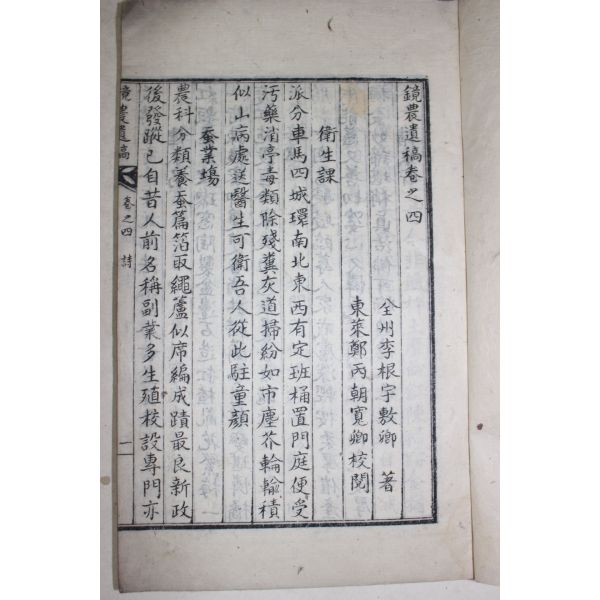 鏡農遺稿卷之四
全州李根宇敷卿 著
東萊鄭丙朝寬卿校閱
衛生課
派分車馬四城環南北東西有定班桶置門庭便受
汚藥消亭毒類除殘糞灰道掃紛如市塵芥輪輸積
似山病處送醫生可衛吾人從此駐童顔
蚕業塲
農科分類養蚕篇箔取繩蘆似席編成蹟最良新政
後發蹤已自昔人前名稱副業多生殖校設專門亦
鏡農遺稿 卷之四 詩 一